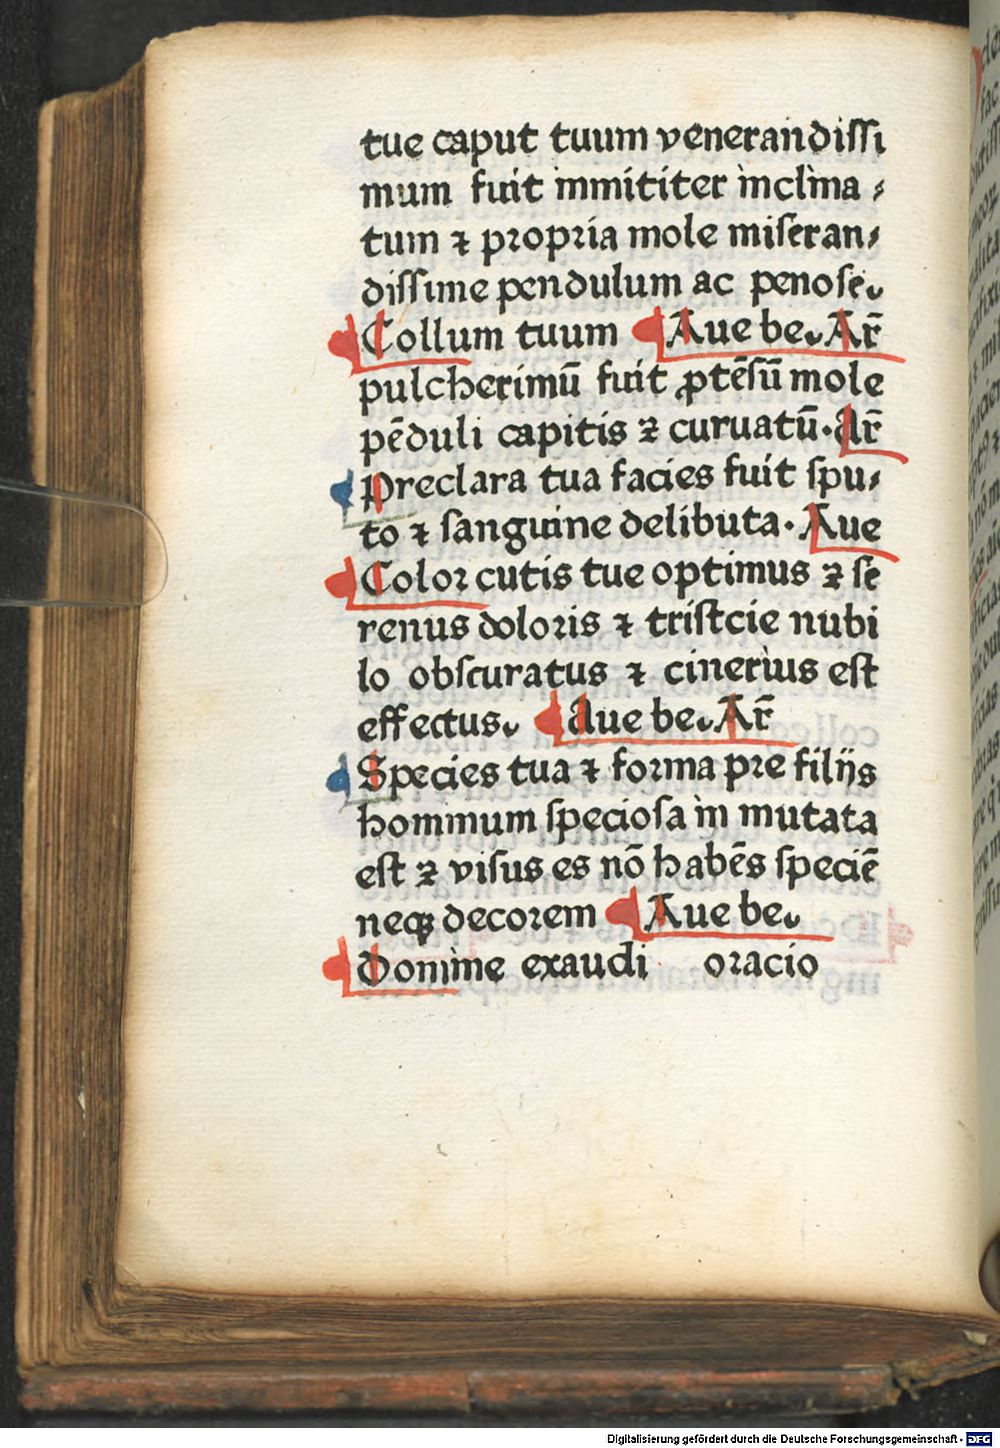 tue caput tuum venerandissi
mum fuit inmititer inclina⸗
tum ⁊ propria mole miseran⸗
dissime pendulum ac penose.
Collum tuum Aue be. Ar̄
pulcherimū fuit ꝓtēsū mole
pēduli capitis ⁊ curuatū. Ar̄
Preclara tua facies fuit spu⸗
to ⁊ sanguine delibuta. Aue
Color cutis tue optimus ⁊ se
renus doloris ⁊ tristcie nubi
lo obscuratus ⁊ cinerius est
effectus. Aue be. Ar̄
Species tua ⁊ forma pre filijs
hominum speciosa in mutata
est ⁊ visus es nō habēs speciē
neqꝫ decorem Aue be.
Domine exaudi oracio
Digitalisierung gefördert durch die Deutsche Forschungsgemeinschaft - DFG